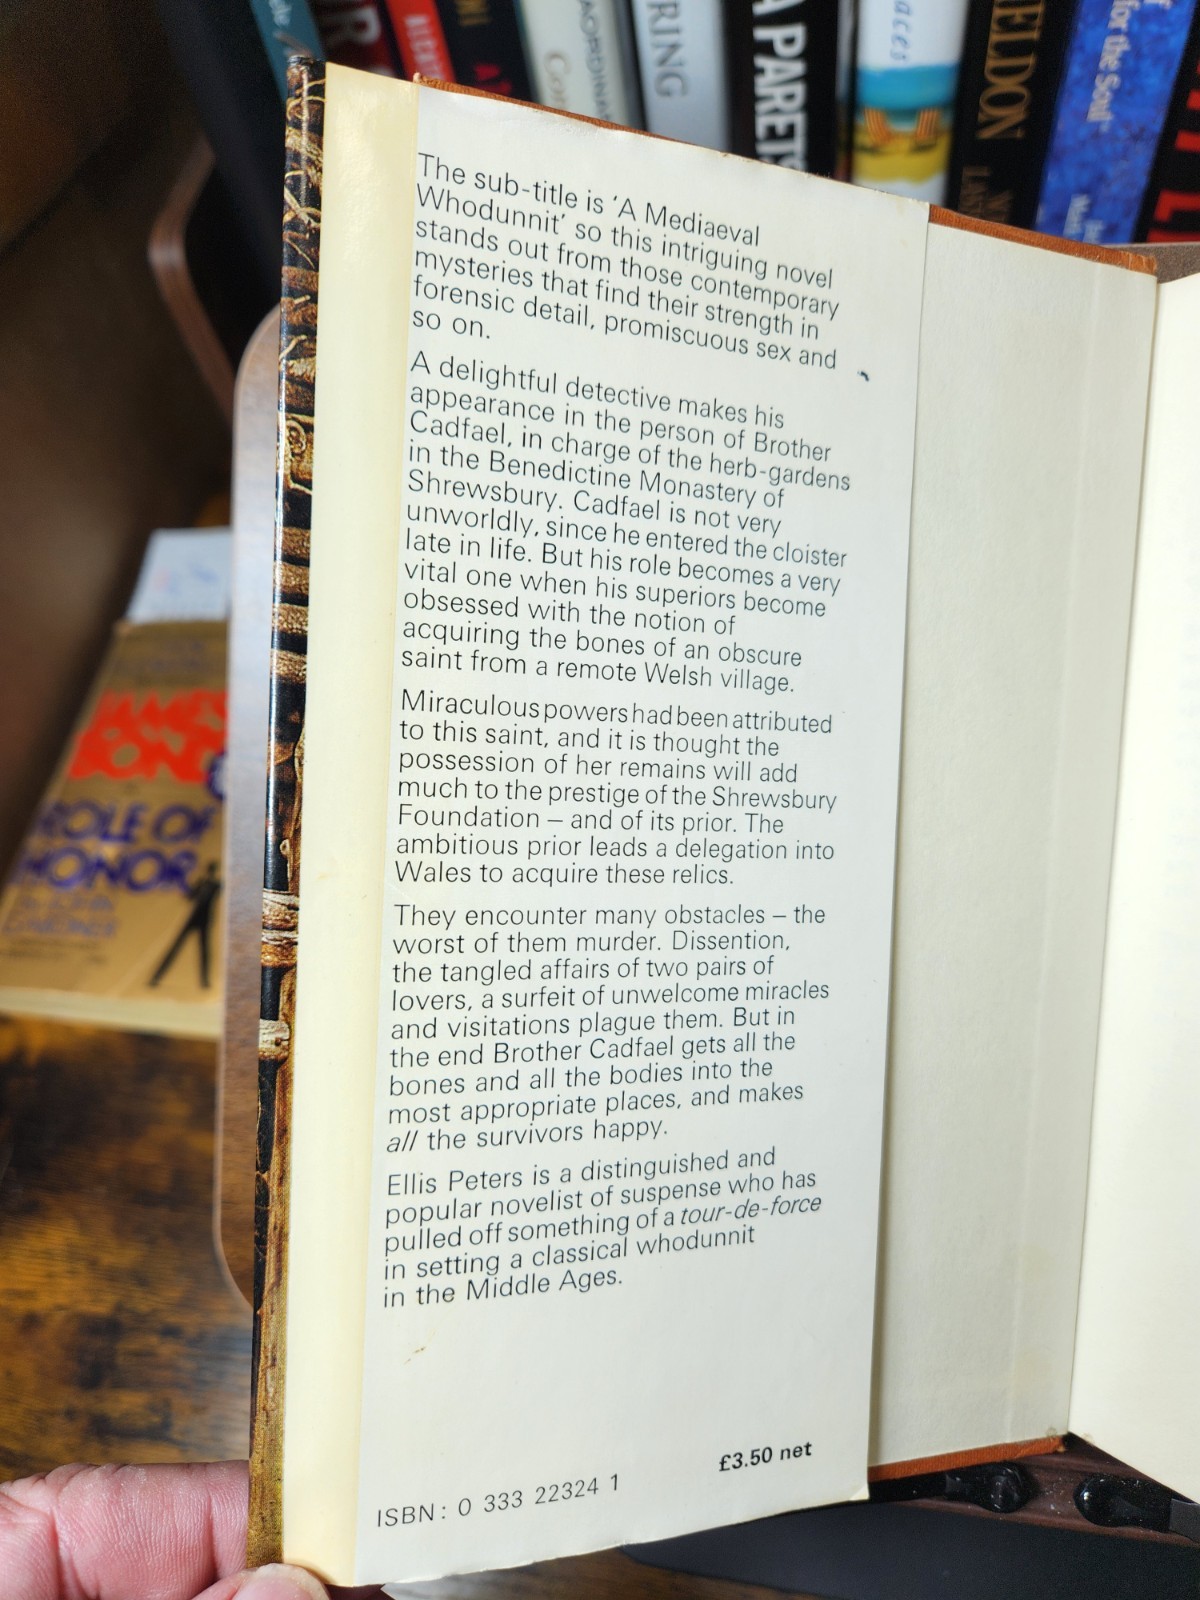 RING
A PARETS
aces
ELDON
for the Soul
The sub-title is ‘A Mediaeval
Whodunnit’ so this intriguing novel
stands out from those contemporary
mysteries that find their strength in
forensic detail, promiscuous sex and
so on.
A delightful detective makes his
appearance in the person of Brother
Cadfael, in charge of the herb-gardens
in the Benedictine Monastery of
Shrewsbury. Cadfael is not very
unworldly, since he entered the cloister
late in life. But his role becomes a very
vital one when his superiors become
obsessed with the notion of
acquiring the bones of an obscure
saint from a remote Welsh village.
Miraculous powers had been attributed
to this saint, and it is thought the
possession of her remains will add
much to the prestige of the Shrewsbury
Foundation – and of its prior. The
ambitious prior leads a delegation into
Wales to acquire these relics.
They encounter many obstacles – the
worst of them murder. Dissention,
the tangled affairs of two pairs of
lovers, a surfeit of unwelcome miracles
and visitations plague them. But in
the end Brother Cadfael gets all the
bones and all the bodies into the
most appropriate places, and makes
all the survivors happy.
Ellis Peters is a distinguished and
popular novelist of suspense who has
pulled off something of a tour-de-force
in setting a classical whodunnit
in the Middle Ages.
£3.50 net
ISBN: 0 333 22324 1
JAMES
BOND
ROLE OF
HONOR